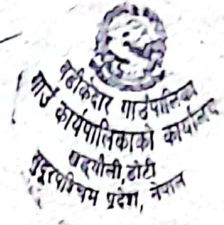 बडीकेदार गाउँपालिका
गाउँ कार्यपालिकाको कार्यालय
धदगौली, डोटी
सुदूरपश्चिम प्रदेश, नेपाल